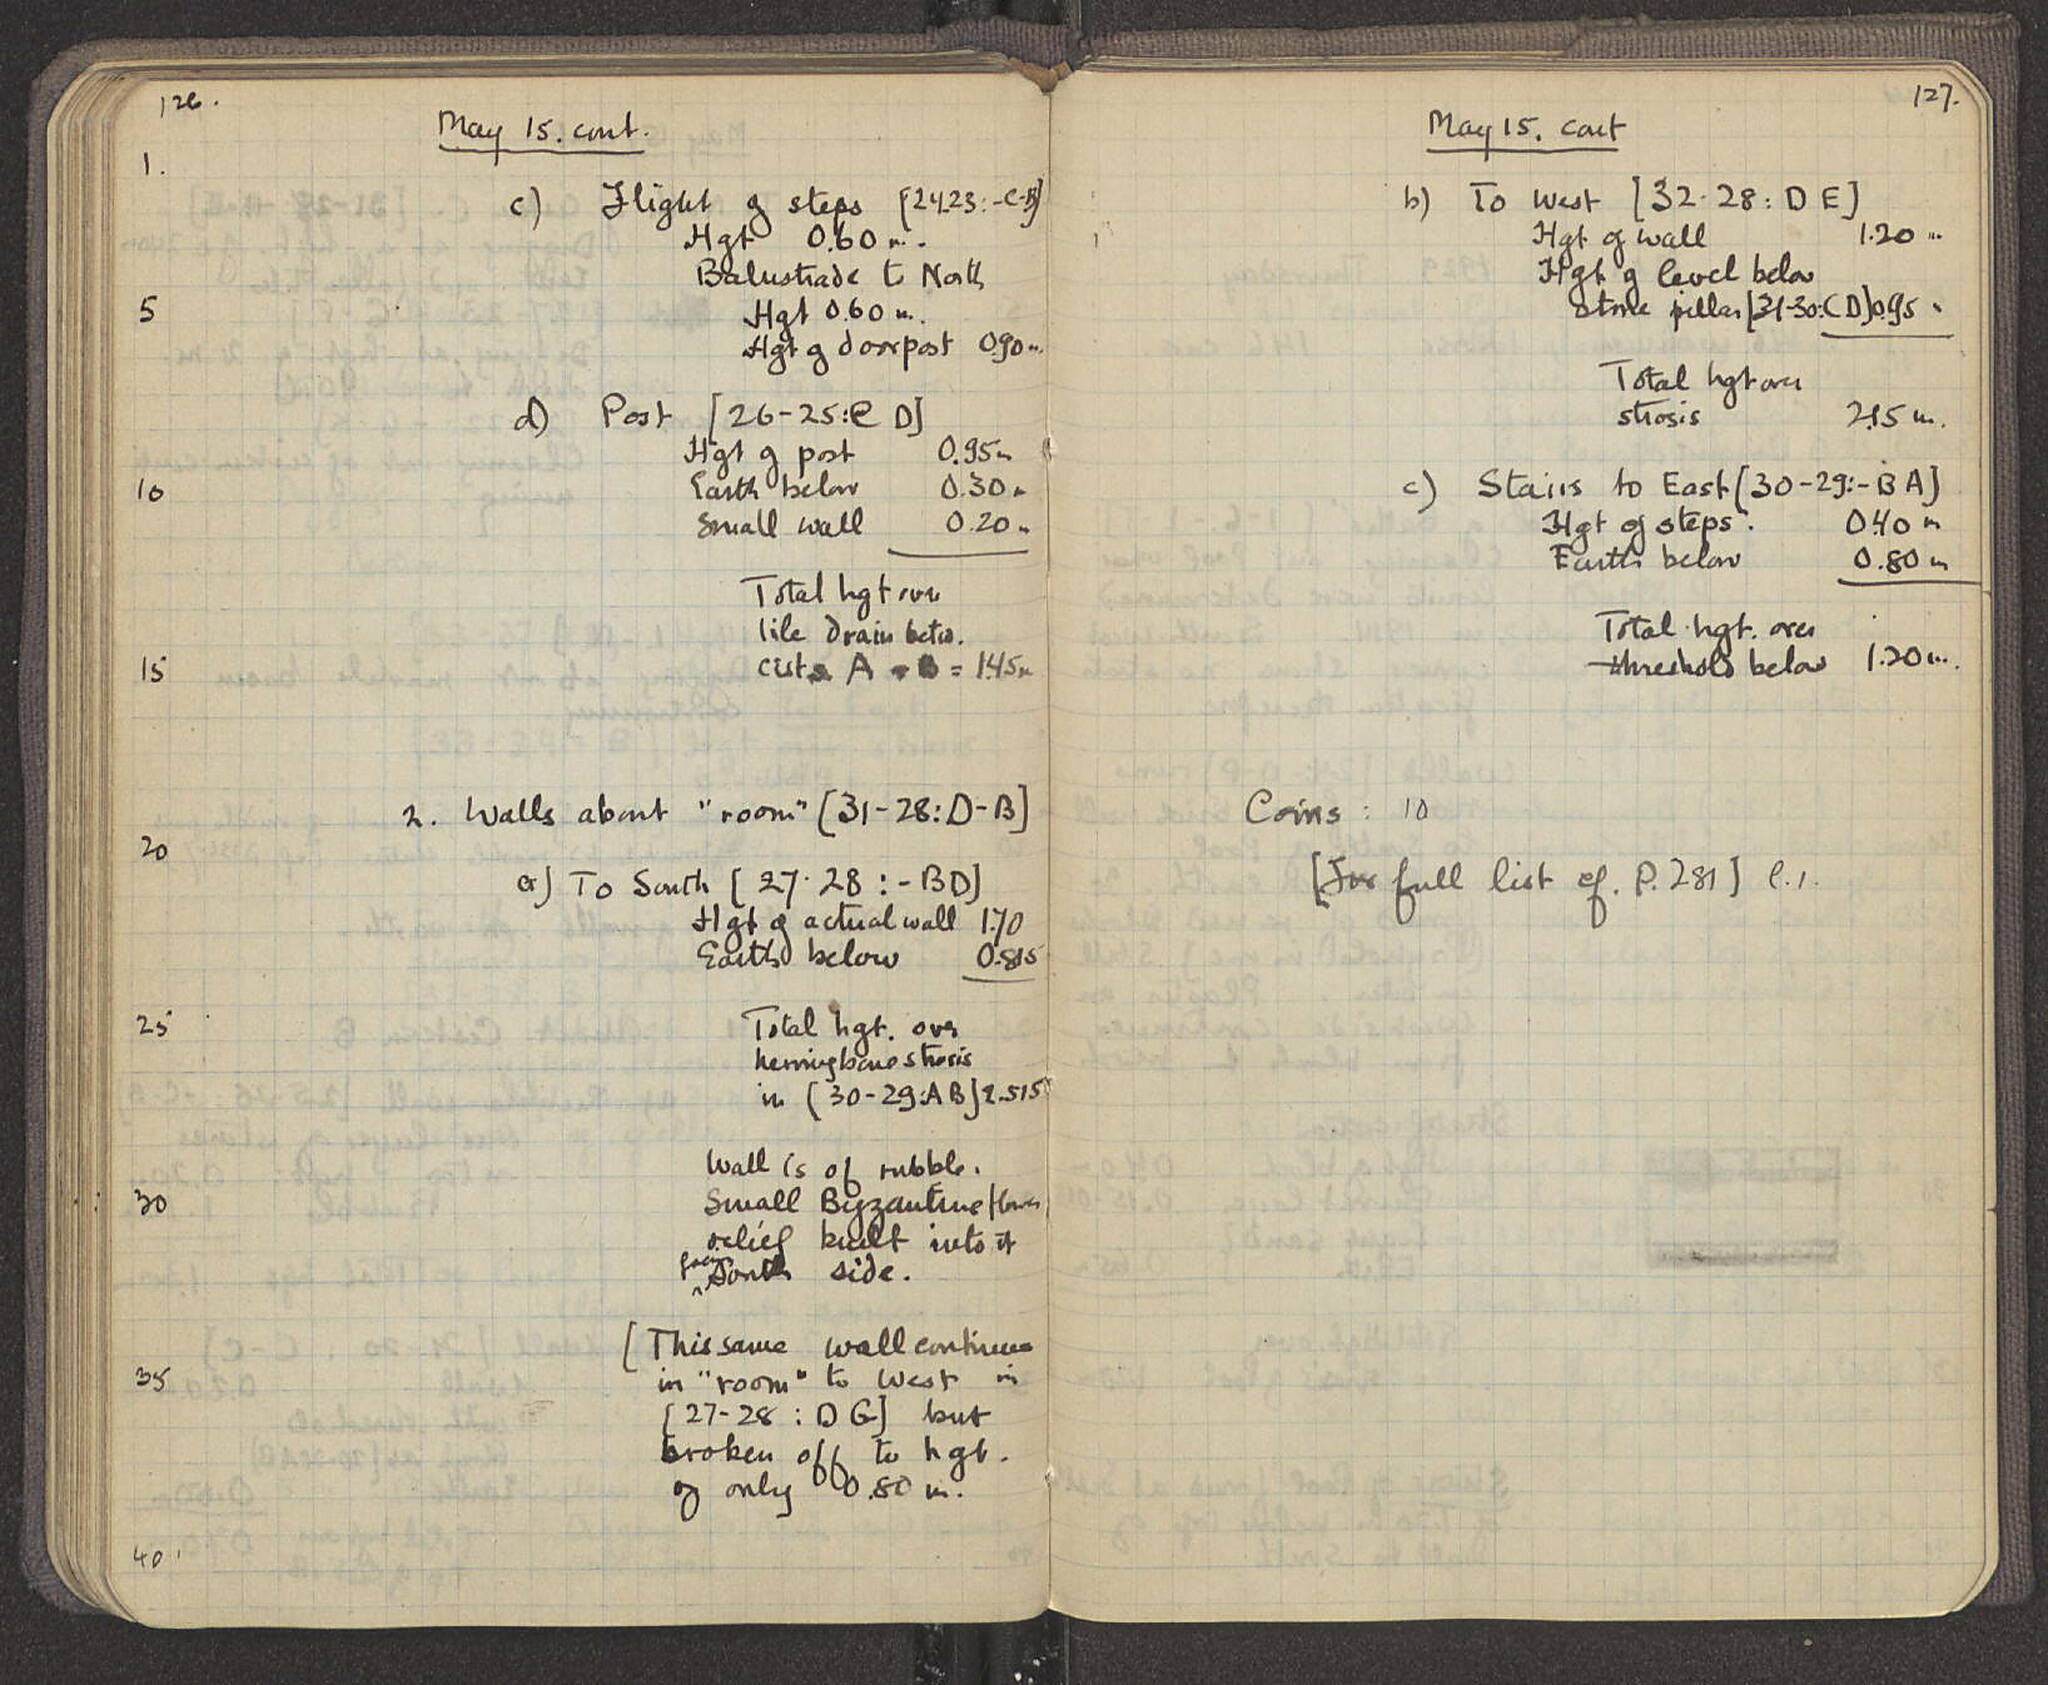 126.
May 15. cont.
1.
c) Flight of steps [24.23:-C-B]
Hgt 0.60 m.
Balustrade to North
5 Hgt 0.60 m.
Hgt of doorpost 0.90 m.
d) Post [26-25:C D]
Hgt of post 0.95 m
10 Earth below 0.30 m
Small wall 0.20 m
Total hgt over
tile drain betw.
15 cists A B = 1.45 m
2. Walls about "room" [31-28:D-B]
20
a) To South [27.28:-BD]
Hgt of actual wall 1.70
Earth below 0.815
25 Total hgt. over
herringbone strosis
in [30-29:AB] 2.515
Wall is of rubble.
30 Small Byzantine flower
relief built into it
facing South side.
[This same wall continues
35 in "room" to West in
[27-28: D G] but
broken off to hgt.
of only 0.80 m.
40
127.
May 15. cont
b) To West [32.28: D E]
Hgt of wall 1.20 m
Hgt of level below
stone pillar [31-30:C D] 0.95 "
Total hgt over
strosis 2.15 m.
c) Stairs to East [30-29:-B A]
Hgt of steps. 0.40 m
Earth below 0.80 m
Total hgt. over
threshold below 1.20 m.
Coins: 10
[For full list cf. P. 281] l.1.